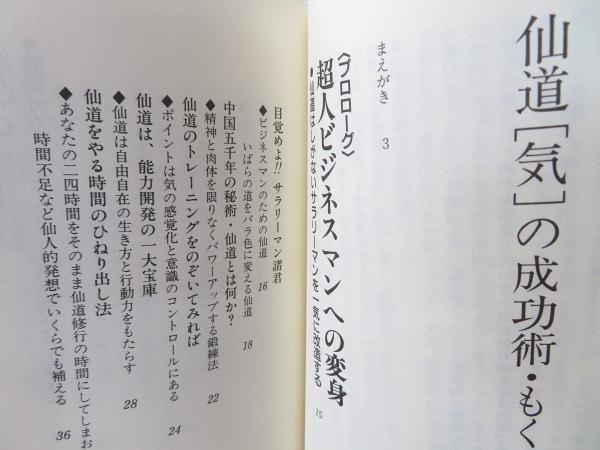 仙道［気］の成功術・もく
まえがき 3
〈プロローグ〉
超人ビジネスマンへの変身
●仙道はしがないサラリーマンを一気に改造する 15
目覚めよ!! サラリーマン諸君 16
◆ビジネスマンのための仙道
いばらの道をバラ色に変える仙道 18
中国五千年の秘術・仙道とは何か？
◆精神と肉体を限りなくパワーアップする鍛練法 22
仙道のトレーニングをのぞいてみれば
◆ポイントは気の感覚化と意識のコントロールにある 24
仙道は、能力開発の一大宝庫
◆仙道は自由自在の生き方と行動力をもたらす 28
仙道をやる時間のひねり出し法
◆あなたの二四時間をそのまま仙道修行の時間にしてしまお
時間不足など仙人的発想でいくらでも補える 36